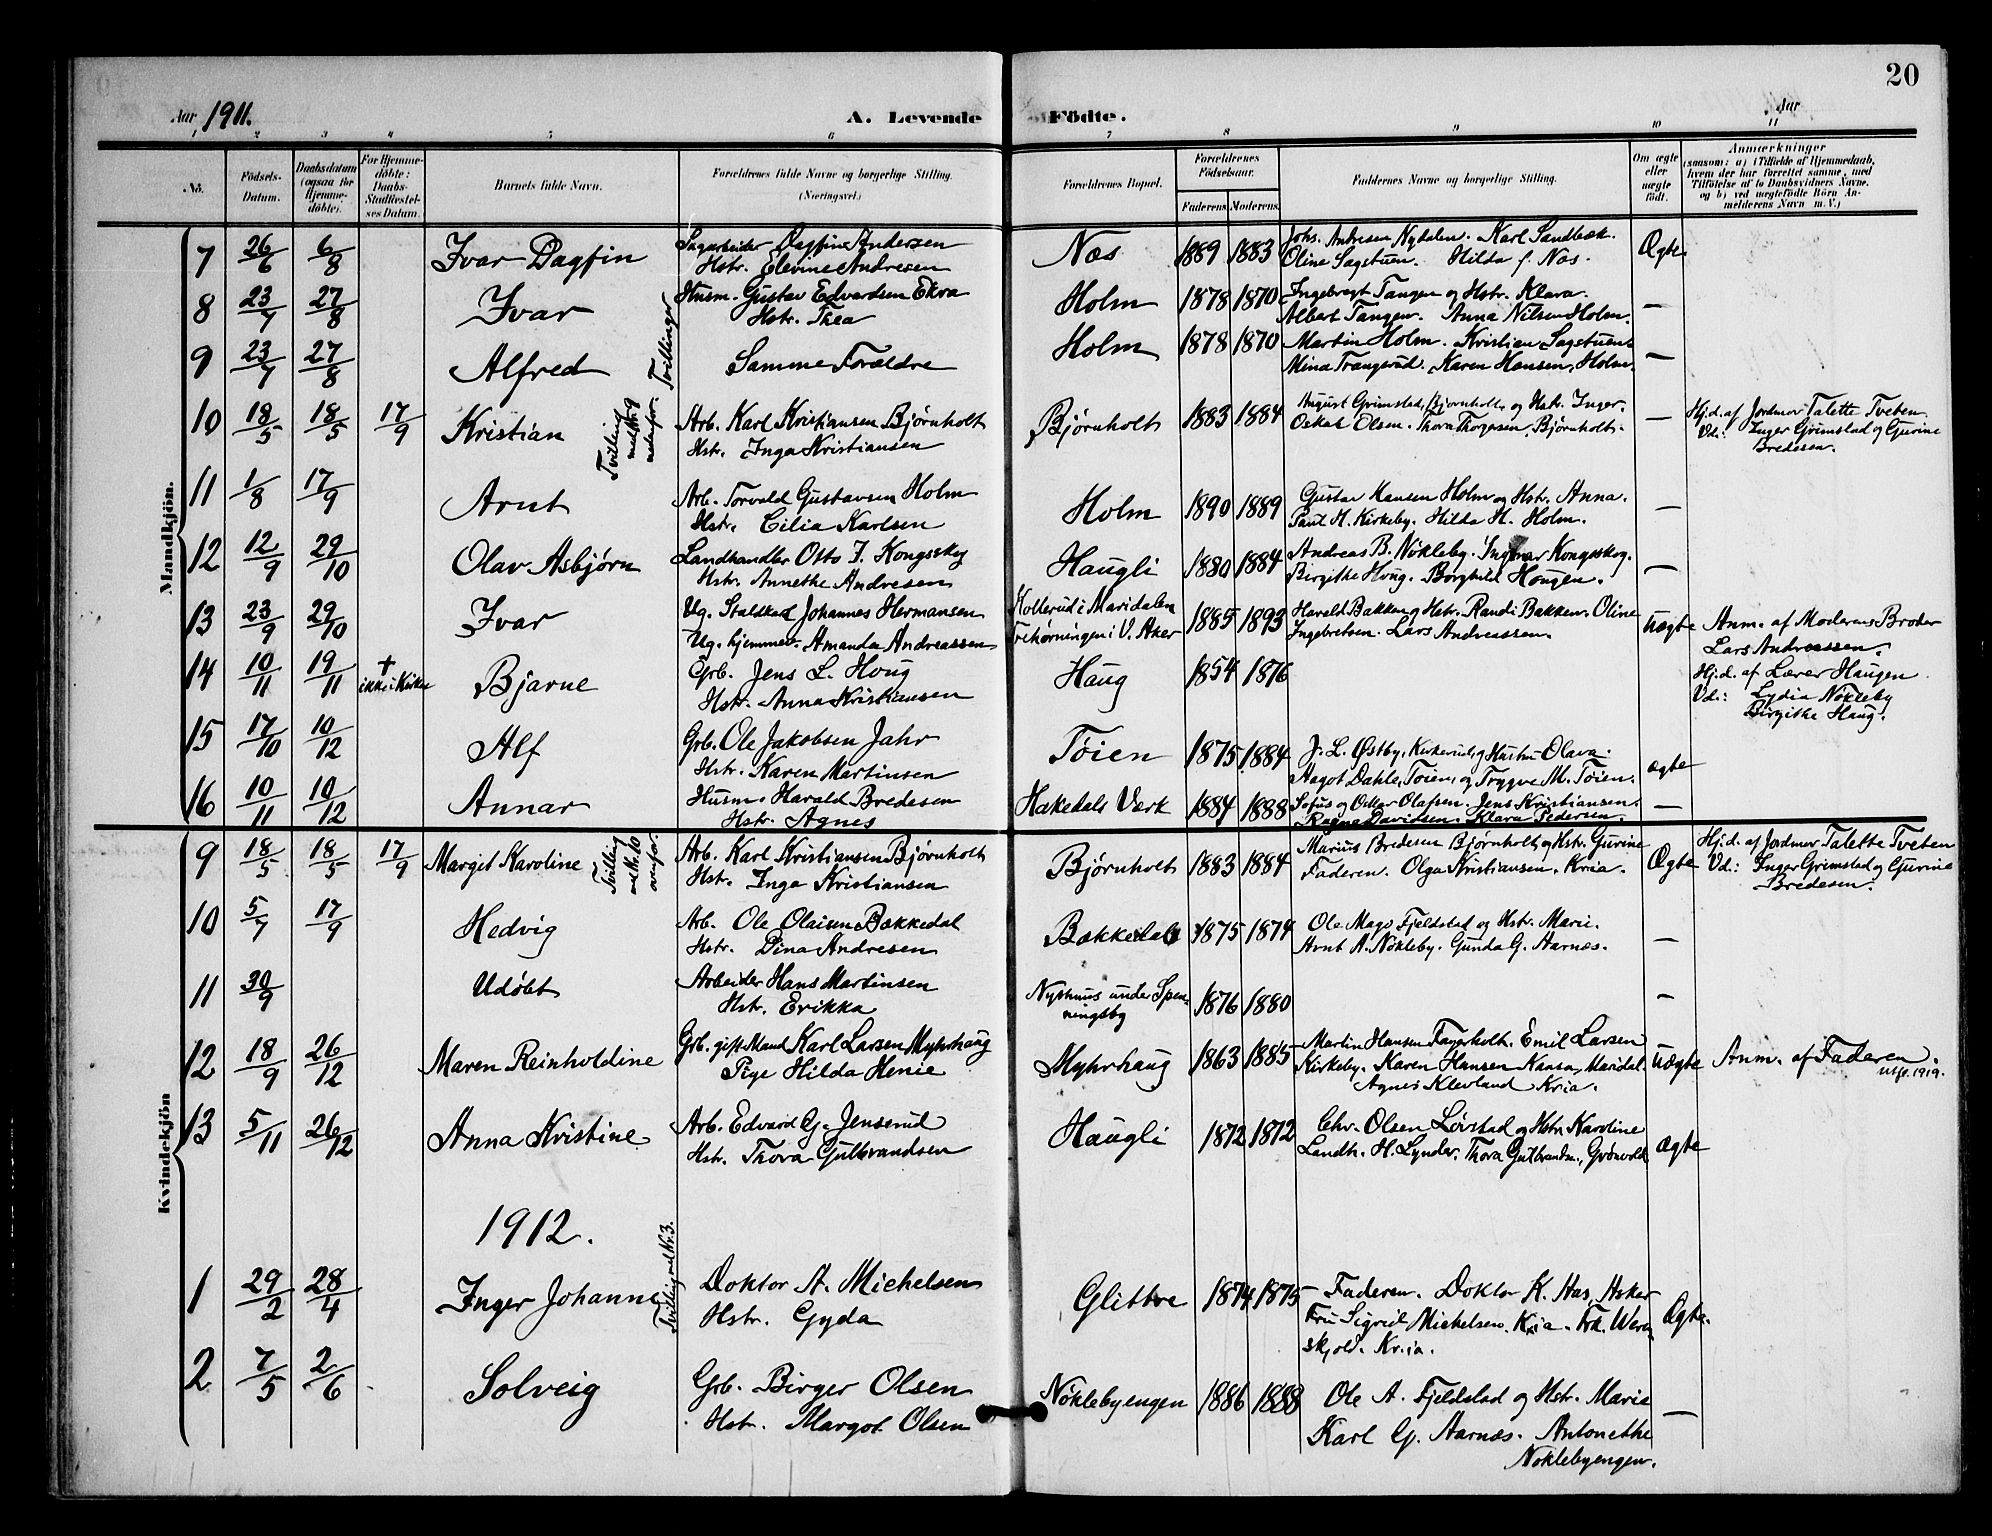 20
Aar 1911. A. Levende Födte. Aar
1 2 3 4 5 6 7 8 9 10 11
No. Födsels-Datum. Daabsdatum (ogsaa for Hjemme-döbte). For Hjemme-döbte: Daabs-Stadfæstel-ses Datum. Barnets fulde Navn. Forældrenes fulde Navne og borgerlige Stilling. (Næringsvei.) Forældrenes Bopæl. Forældrenes Födselsaar. Faderens. Moderens. Faddernes Navne og borgerlige Stilling. Om ægte eller uægte födt. Anmærkninger (saasom: a) i Tilfælde af Hjemmedaab, hvem der har forrettet samme, med Tilföielse af to Daabsvidners Navne, og b) ved uægtefödte Börn Anmelderens Navn m. V.)
Mandkjön.
7 26/6 6/8 Ivar Dagfin Sagarbeider Dagfin Andersen Næs 1889 1883 Johs. Andresen Nydalen. Karl Sandbæk. Ægte
Hstr. Elevine Andresen Oline Sagstuen. Hilda f. Næs.
8 23/7 27/8 Ivar Tvillinger Husm. Gustav Edvardsen Ekra Holm 1878 1870 Ingebregt Tangen og Hstr. Klara. —
Hstr. Thea Albert Tangen. Anna Nilsen Holm.
9 23/7 27/8 Alfred Samme Forældre Holm 1878 1870 Martin Holm. Kristian Sagstuen —
Mina Trangerud. Karen Hansen, Holm.
10 18/5 18/5 17/9 Kristian Tvilling med Nr. 9 nedenfor. Arb. Karl Kristiansen Bjørnholt Bjørnholt 1883 1884 August Grimstad, Bjørnholt og Hstr. Inger. — Hj.d. af Jordmor Talette Tveten
Hstr. Inga Kristiansen Oskar Olsen. Thora Thoresen, Bjørnholt. Vd.: Inger Grimstad og Gurine
Bredesen.
11 1/8 17/9 Arnt Arb. Torvald Gustavsen Holm Holm 1890 1889 Gustav Hansen Holm og Hstr. Anna. —
Hstr. Cilia Karlsen Paul H. Kirkeby. Hilda H. Holm.
12 12/9 29/10 Olav Asbjørn Landhandler Otto J. Kongsskog Haugli 1880 1884 Andreas B. Nøkleby. Ingvar Kongsskog. —
Hstr. Annethe Andresen Birgithe Houg. Borghild Hougen.
13 23/9 29/10 Ivar Ug. Staldkarl Johannes Hermansen Kollerud i Maridalen 1885 1893 Harald Bakken og Hstr. Randi Bakken. Oline uægte Anm. af Moderens Broder
Ug. hjemmev. Amanda Andreassen Trehørningen i V. Aker Ingebretsen. Lars Andreassen. Lars Andreassen.
14 10/11 19/11 + ikke i Kirken Bjarne Grb. Jens L. Houg Haug 1854 1876 Hj.d. af Lærer Haugen
Hstr. Anna Kristiansen Vd.: Lydia Nøkleby
Birgithe Haug.
15 17/10 10/12 Alf Grb. Ole Jakobsen Jahr Tøien 1875 1884 J. L. Østby, Kirkerud, og Hustru Olava. ægte
Hstr. Karen Martinsen Aagot Dahle, Tøien, og Trygve M. Tøien.
16 10/11 10/12 Annar Husm. Harald Bredesen Hakedals Værk 1884 1888 Sofus og Oskar Olafsen. Jens Kristiansen. —
Hstr. Agnes Ragna Davidsen. Klara Pedersen.
Kvindekjön
9 18/5 18/5 17/9 Margit Karoline Tvilling med Nr. 10 ovenfor. Arb. Karl Kristiansen Bjørnholt Bjørnholt 1883 1884 Marius Bredesen Bjørnholt og Hstr. Gurine Ægte Hj.d. af Jordmor Talette Tveten
Hstr. Inga Kristiansen Faderen. Olga Kristiansen. Kria. Vd.: Inger Grimstad og Gurine
Bredesen.
10 5/7 17/9 Hedvig Arb. Ole Olaisen Bækkedal Bækkedal 1875 1874 Ole Mago Fjeldstad og Hstr. Marie. —
Hstr. Dina Andresen Arnt A. Nøkleby. Gunda G. Aarnæs.
11 30/9 Udøbt Arbeider Hans Martinsen Nythuus under Spen- 1876 1880 —
Hstr. Erikka ningsby
12 18/9 26/12 Maren Reinholdine Grb. gift Mand Karl Larsen Myhrhaug Myhrhaug 1863 1885 Martin Hansen Fagerholt. Emil Larsen uægte Anm. af Faderen.
Pige Hilda Henie Kirkeby. Karen Hansen Kaasa, Maridal. utf. 1919.
Agnes Klevland Kria.
13 5/11 26/12 Anna Kristine Arb. Edvard G. Jenserud Haugli 1872 1872 Chr. Olsen Lørstad og Hstr. Karoline ægte
Hstr. Thora Gulbrandsen Landh. H. Lynder. Thora Gulbrandsen, Grønvold
1912.
1 29/2 28/4 Inger Johanne Tvilling med Nr. 3. Doktor A. Michelsen Glittre 1874 1875 Faderen. Doktor K. Aas, Asker Ægte.
Hstr. Gyda Fru Sigrid Michelsen. Kria. Frk. Weren-
skjold. Kria.
2 7/5 2/6 Solveig Grb. Birger Olsen Nøklebyengen 1886 1888 Ole A. Fjeldstad og Hstr. Marie —
Hstr. Margot Olsen Karl G. Aarnæs. Antonethe
Nøklebyengen.